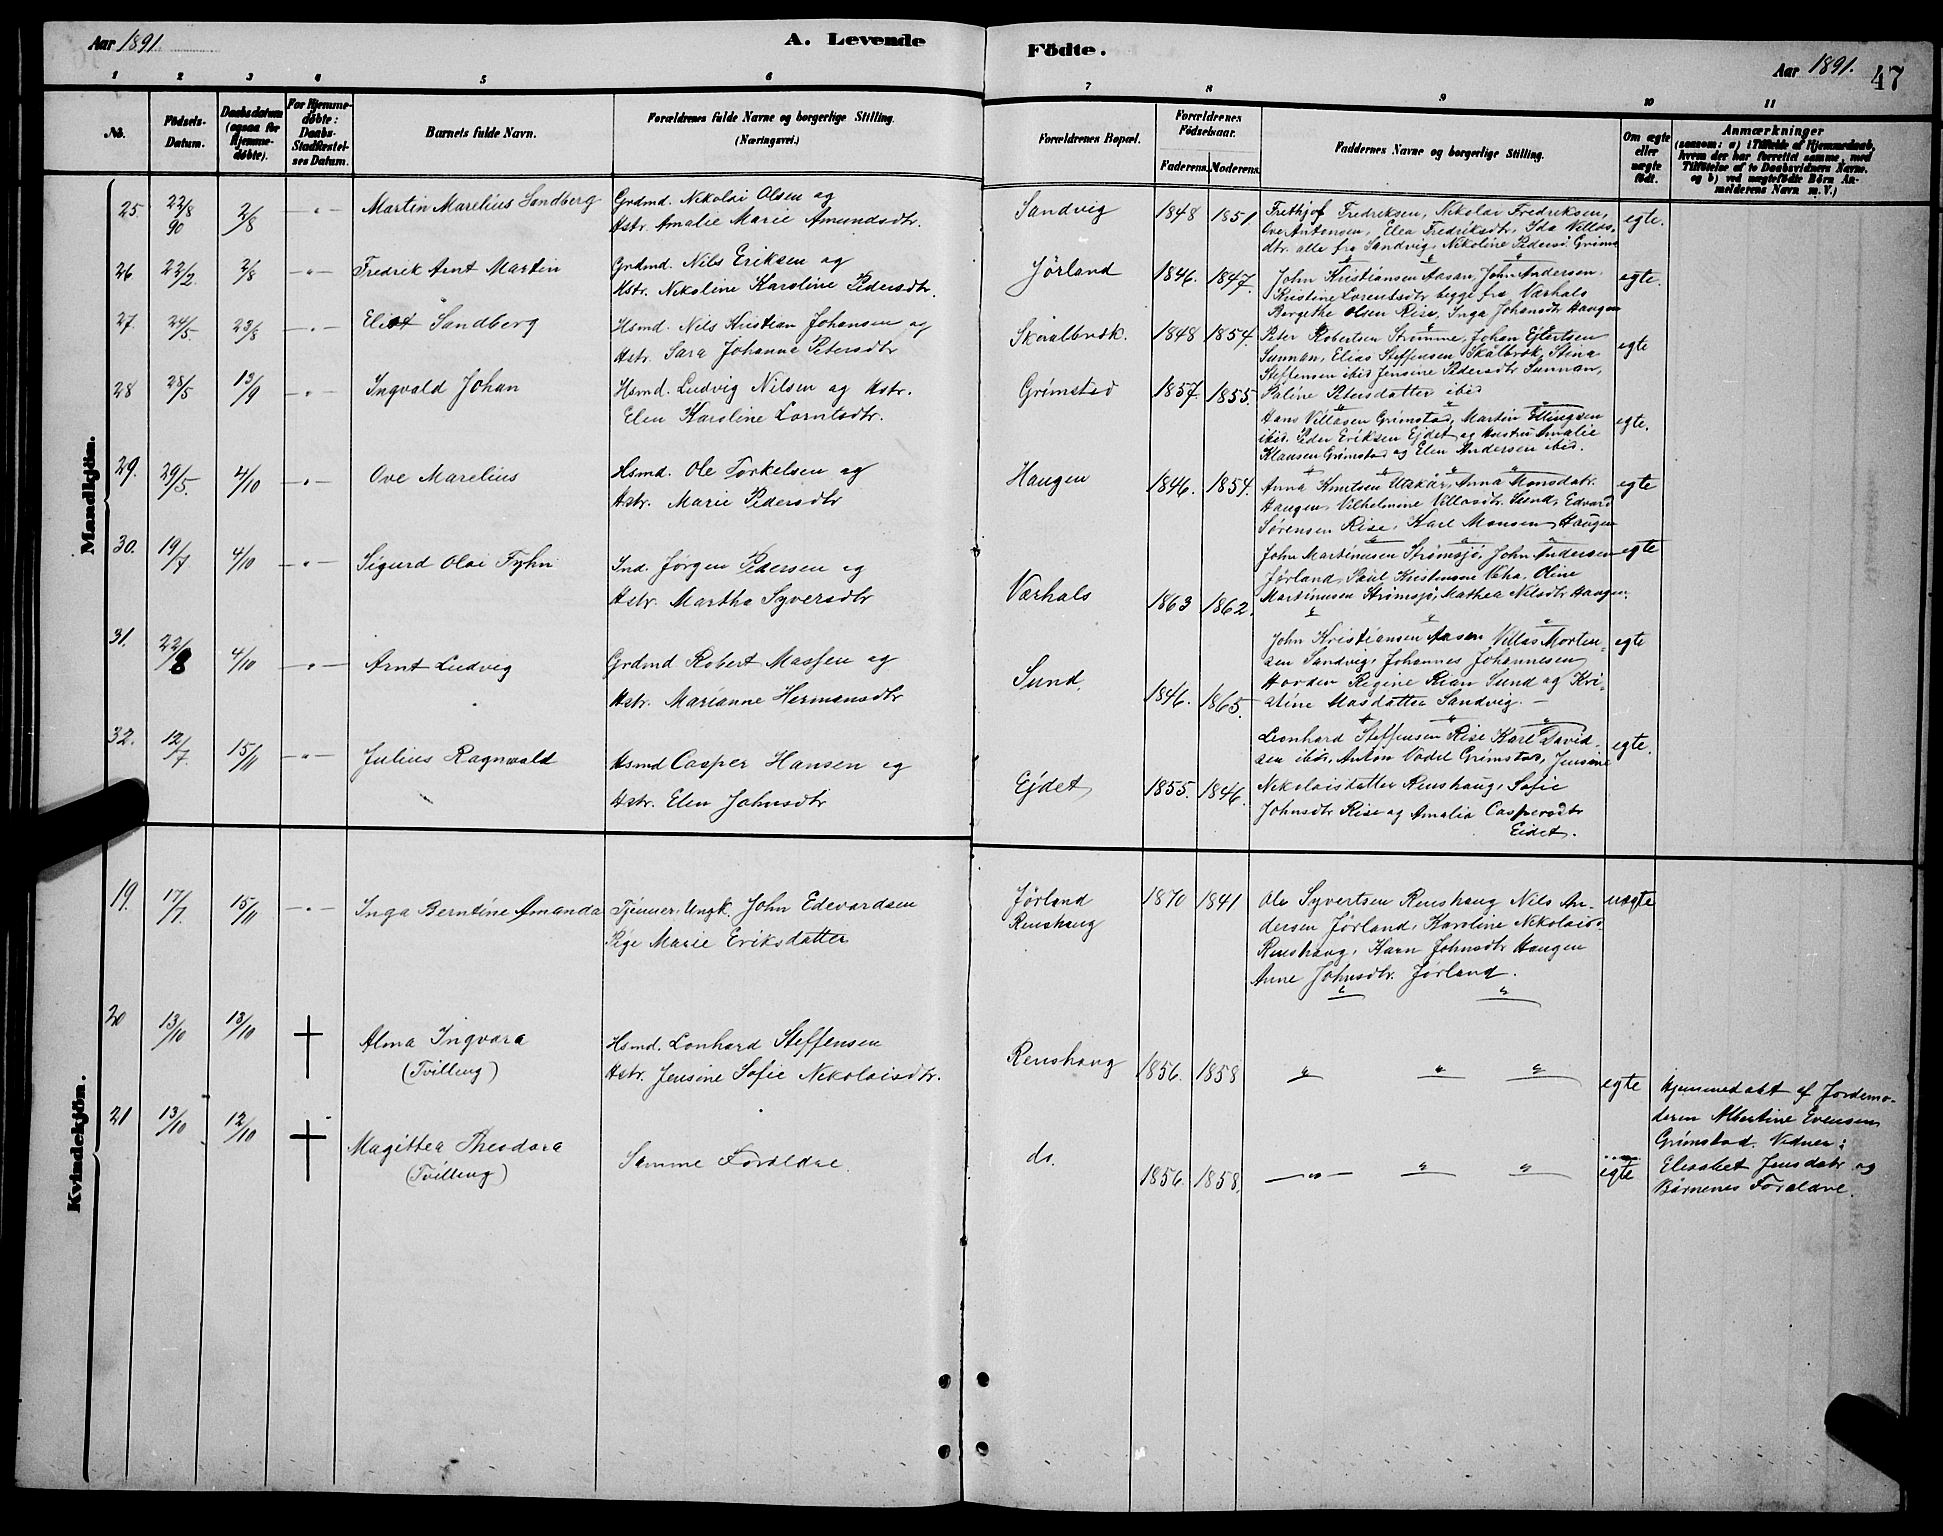 Aar 1891.
A. Levende
Födte.
Aar 1891.
47
1 2 3 4 5 6 7 8 9 10 11
No.
Födsels-
Datum.
Daabsdatum
(ogsaa for
Hjemme-
døbte).
For Hjemme-
døbte:
Daabs-
Stadfæstel-
ses Datum.
Barnets fulde Navn.
Forældrenes fulde Navne og borgerlige Stilling.
(Næringsvei.)
Forældrenes Bopæl.
Forældrenes
Födselsaar.
Faderens. Moderens.
Faddernes Navne og borgerlige Stilling.
Om ægte
eller
uægte
födt.
Anmærkninger
(saasom: a) i Tilfælde af Hjemmedaab,
hvem der har forrettet samme, med
Tilföielse af to Daabsvidners Navne.
og b) ved uægtefödte Börn An-
melderens Navn m. V.)
Mandkjön.
25 22/8 90 2/8 Martin Marelius Sandberg
Grdmd. Nikolai Olsen og
Hstr. Amalie Marie Amundsdtr.
Sandvig 1848 1851.
Frethjof Fredriksen, Nikolai Fredriksen,
Ove Antonsen, Elea Fredriksdtr, Ida Villas-
dtr. alle fra Sandvig, Nikoline Pedersd. Grims
egte.
26 22/2. 2/8 Fredrik Arnt Martin
Grdmd. Nils Eriksen og
Hstr. Nikoline Karoline Pedersdtr.
Jørland 1846. 1847.
John Kristiansen Aasan, John Andersen,
Kristine Lorentsdtr begge fra Værhals
Bergethe Olsen Rise, Inga Johansdtr Haugen
egte.
27. 24/5. 23/8 Sandberg
Hsmd. Nils Kristian Johansen og
Hstr. Sara Johanna Petersdtr
Skoialbrok. 1848 1854.
Peter Robertsen Strømme, Johan Ejlertsen
Sunnan, Elias Steffensen Skålbrok, Stina
Steffensen ibid Jensine Pedersdtr Sunnan,
Paline Petersdatter ibid
egte
28 28/5 13/9 Ingvald Johan
Hsmd. Ludvig Nilsen og Hstr.
Elen Karoline Lorntsdtr.
Grimstad 1857. 1855.
Hans Villasen Grimstad, Martin Ellingsen
ibid. Peder Eriksen Ejdet og Hustru Amalie
Klausen Grimstad og Elen Andersen ibid.
egte.
29. 29/5. 4/10 Ove Marelius
Hsmd. Ole Torkelsen og
Hstr. Marie Pedersdtr
Haugen 1846. 1854.
Anna Knutsen Utskar, Anna Monsdatr.
Haugen, Vilhelmine Villasdtr. Sund, Edvard
Sørensen Rise, Karl Monsen Haugen
egte
30. 19/7 4/10 Sigurd Olai Fyhn
Ind. Jørgen Pedersen og
Hstr. Martha Syversdtr
Værhals 1863 1862.
John Martinusen Strømsjø, John Andersen
Jørland, Paul Kristensen Oline
Martinusen Strømsjø, Mathea Nilsdtr Haugen.
egte
31. 22/8 4/10 Arnt Ludvig
Grdmd Robert Massen og
Hstr. Marianne Hermansdtr
Sund. 1846. 1865.
John Kristiansen Aasen Villas Morten-
sen Sandvig, Johannes Johannesen
Horden Regine Rian Sund og Kri-
stine Masdatter Sandvig.
egte
32. 12/7. 15/11 Julius Ragnvald
Hsmd Casper Hansen og
Hstr. Elen Johnsdtr
Ejdet 1855. 1846.
Leonhard Steffensen Rise Karl David-
sen ibid, Anton Vadel Grimstad, Jensine
Nikolaisdatter Renshaug, Sofie
Johnsdtr Rise og Amalia Caspersdtr
Eidet.
egte.
Kvindekjön.
19. 17/7. 15/11 Inga Berntine Amanda
Tjener, Ungk. John Edevardsen
Pige Marie Eriksdatter
Jørland
Renshaug
1870 1841
Ole Syvertsen Renshaug Nils An-
dersen Jørland, Karoline Nikolais-
Renshaug, Karn Johnsdtr Haugen
Anne Johnsdtr. Jørland.
uægte
20 13/10 13/10 Alma Ingvara
(Tvilling)
Hsmd. Lonhard Steffensen
Hstr. Jensine Sofie Nikolaisdtr.
Renshaug 1856. 1858
egte
Hjemmedøbt af Jordemo-
deren Albertine Evensen
Grimstad. Vidner:
Elisabet Jensdatr og
Børnenes Forældre.
21 13/10 12/10 Magittea Theodora
(Tvilling)
Samme Forældre.
do. 1856. 1858.
egte